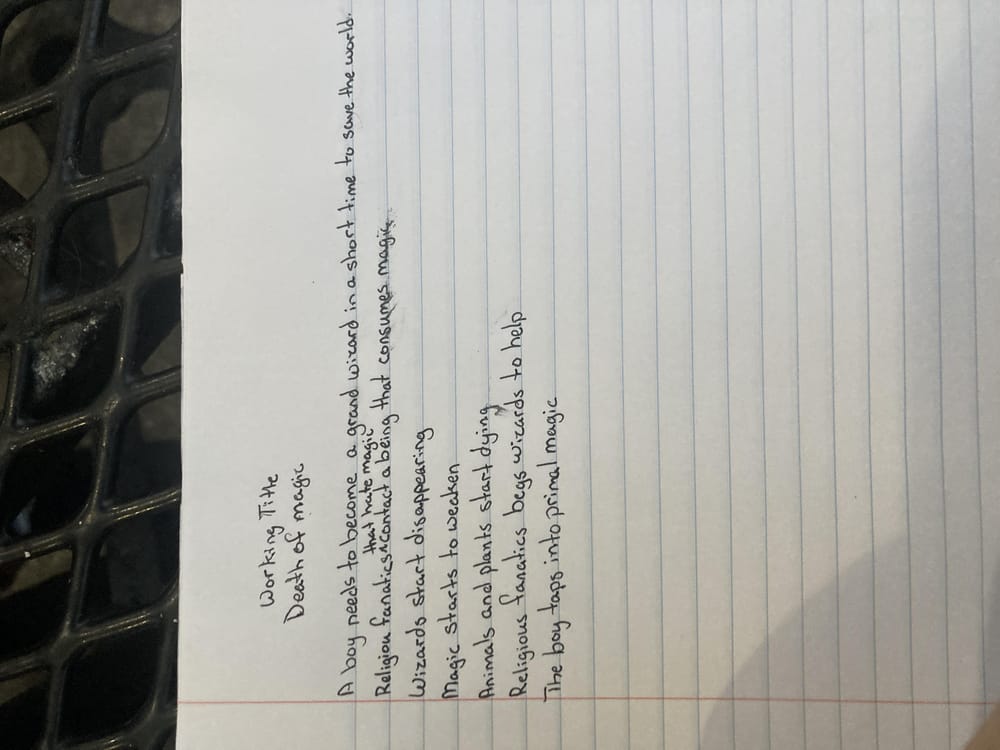 Working Title
Death of magic
A boy needs to become a grand wizard in a short time to save the world.
that hate magic
Religion fanatics ^ contact a being that consumes magic.
Wizards start disappearing
Magic starts to weaken
Animals and plants start dying
Religious fanatics begs wizards to help
The boy taps into primal magic